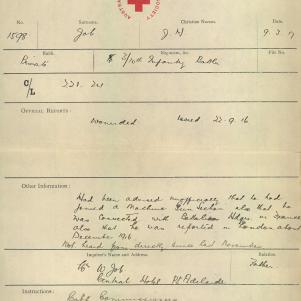 AUSTRA
SOCIETY
No.
Surname.
Christian Names.
1598
Job
J. H
9.3.17
Rank.
Regiment, &c.
File No.
Private
2/10th Infantry Battn
C/L
221.
OFFICIAL REPORTS:
wounded
issued 22-9-16
Other Information:
Had been advised unofficially that he had
joined a Machine Gun Section also that he
was connected with Battalion Hdqrs in France
also that he was reported in London about
December 1916
Not heard from directly since last November
Inquirer's Name and Address.
Relation.
W Job
Father
Central Hotel Pt Adelaide
Instructions: